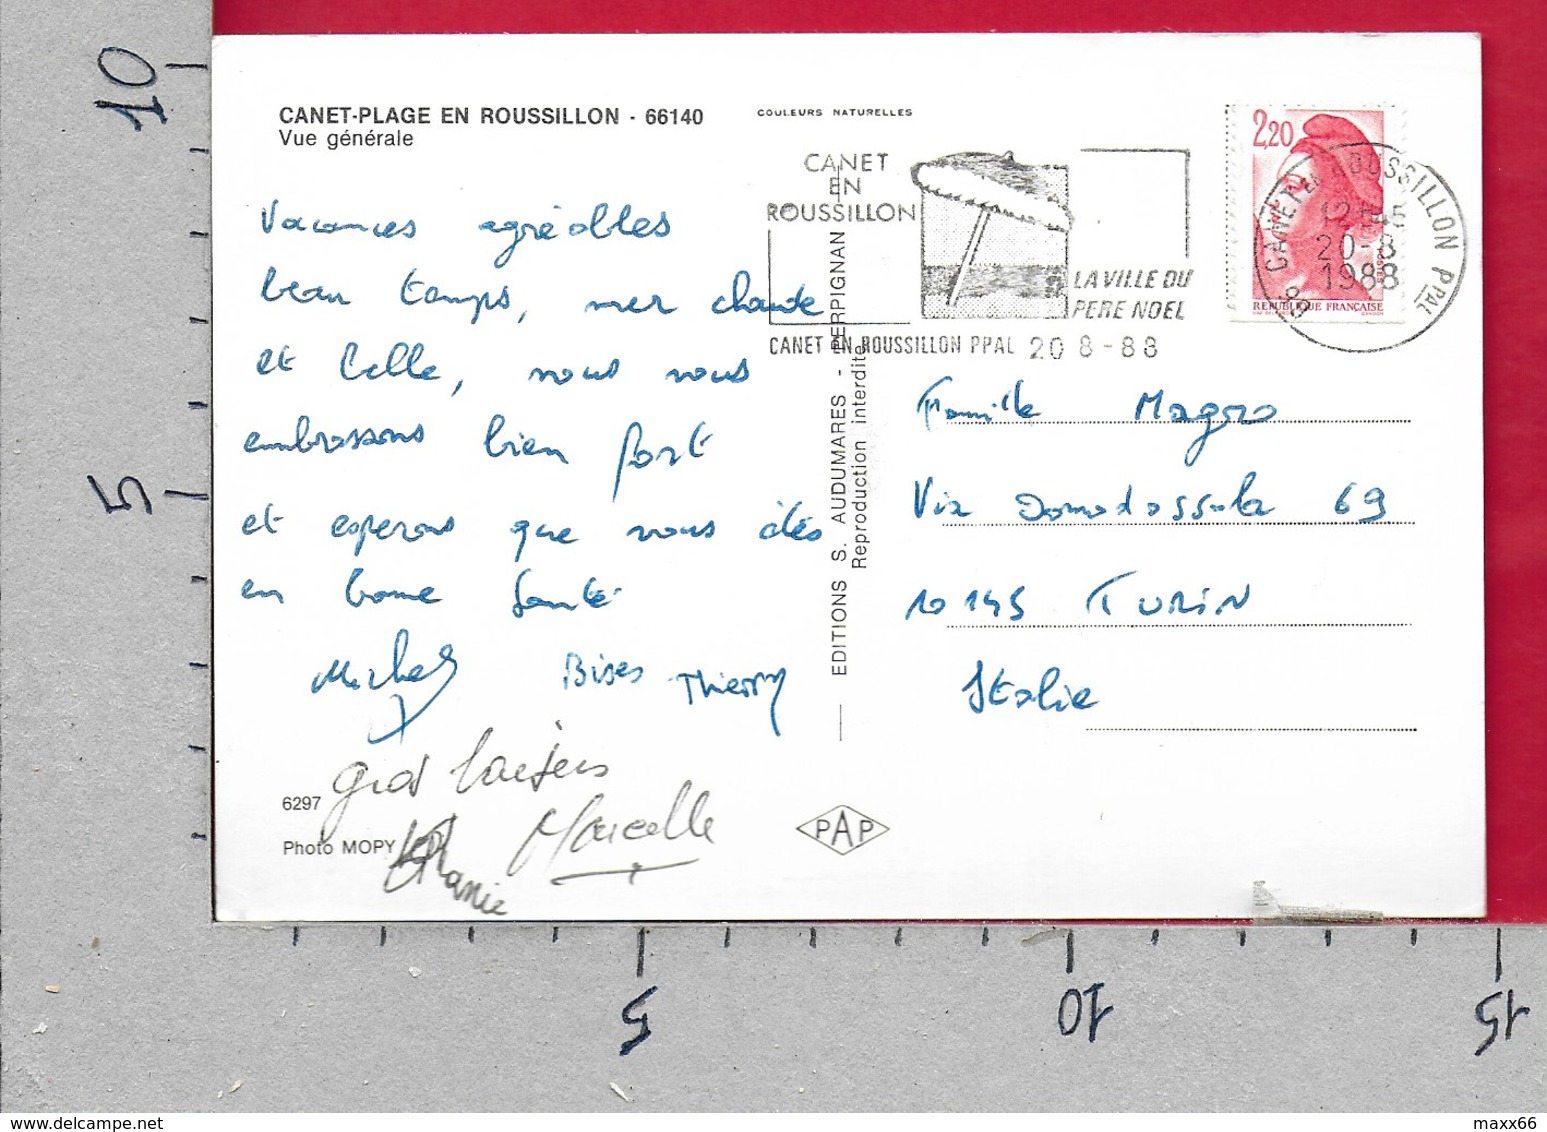 10
5
CANET-PLAGE EN ROUSSILLON - 66140
Vue générale
COULEURS NATURELLES
CANET
EN
ROUSSILLON
LA VILLE DU
PERE NOEL
CANET EN ROUSSILLON PPAL 20 8-88
2,20
REPUBLIQUE FRANÇAISE
CANET EN ROUSSILLON PPAL
12H45
20-8
1988
66
Vacances agréables
beau temps, mer chaude
et belle, nous vous
embrassons bien fort
et esperons que vous êtes
en bonne santé
Michel Bises Thierry
gros baisers
Marcelle
6297
Photo MOPY
EDITIONS S. AUDUMARES - PERPIGNAN
Reproduction interdite
PAP
Famille Magro
Via Domodossola 69
10145 TURIN
Italie
5
10
15
www.delcampe.net
maxx66